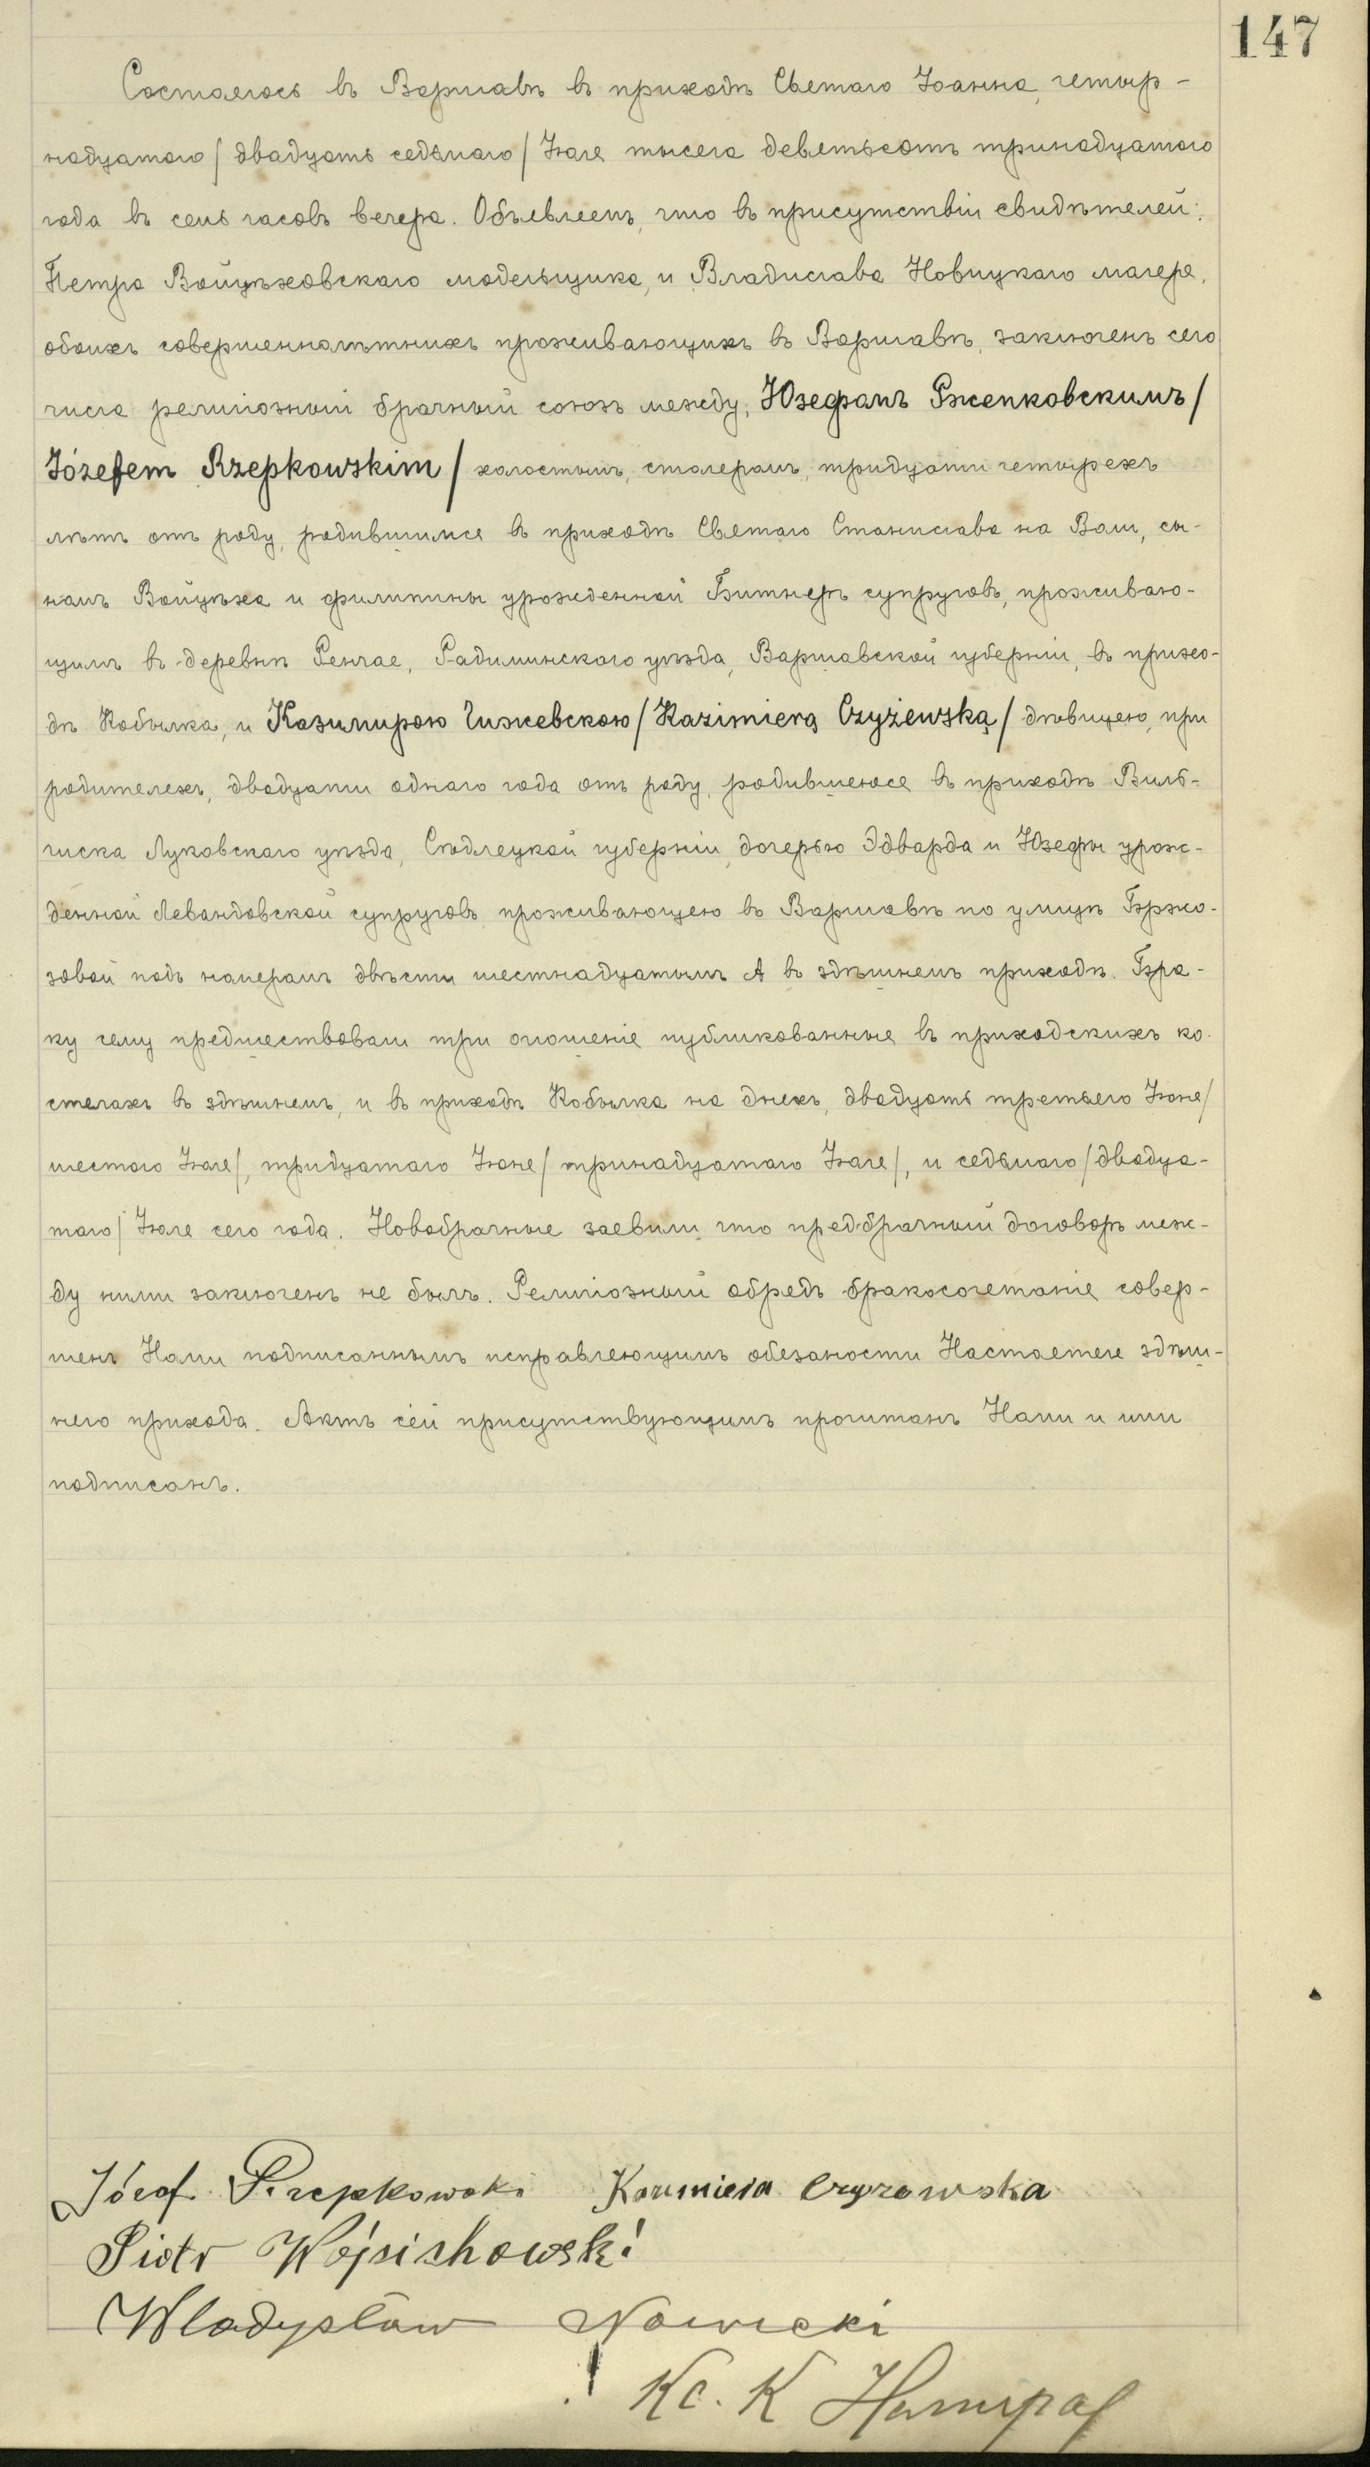 147
Состоялось въ Варшавѣ въ приходѣ Святаго Іоанна, четыр-
надцатаго / двадцать седьмаго / Іюля тысяча девятьсотъ тринадцатаго
года въ семь часовъ вечера. Объявляемъ, что въ присутствіи свидѣтелей:
Петра Войцѣховскаго модельщика, и Владислава Новицкаго маляра,
обоихъ совершеннолѣтнихъ проживающихъ въ Варшавѣ, заключенъ сего
числа религіозный брачный союзъ между: Юзефомъ Ржепковскимъ /
Józefem Rzepkowskim / холостымъ, столяромъ, тридцати четырехъ
лѣтъ отъ роду, родившимся въ приходѣ Святаго Станислава на Воли, сы-
номъ Войцѣха и Филипины урожденной Битнеръ супруговъ, проживаю-
щимъ въ деревнѣ Ренчае, Радиминскаго уѣзда, Варшавской губерніи, въ прихо-
дѣ Кобылка, и Казимирою Чижевскою / Kazimierą Czyżewską / дѣвицею, при
родителяхъ, двадцати одного года отъ роду, родившеюся въ приходѣ Виль-
чиска Луковскаго уѣзда, Сѣдлецкой губерніи, дочерью Эдварда и Юзефы урож-
денной Левандовской супруговъ, проживающею въ Варшавѣ по улицѣ Бржо-
зовой подъ номеромъ двѣсти шестнадцатымъ А въ здѣшнемъ приходѣ. Бра-
ку сему предшествовали три оглошенія публикованныя въ приходскихъ ко-
стелахъ въ здѣшнемъ, и въ приходѣ Кобылка на дняхъ, двадцать третьяго Іюня /
шестого Іюля /, тридцатаго Іюня / тринадцатаго Іюля /, и седьмаго / двадца-
таго / Іюля сего года. Новобрачные заявили что предбрачный договоръ меж-
ду ними заключенъ не былъ. Религіозный обрядъ бракосочетанія совер-
шенъ Нами подписаннымъ исправляющимъ обязаности Настоятеля здѣш-
няго прихода. Актъ сей присутствующимъ прочитанъ Нами и ими
подписанъ.
Józef Rzepkowski Kazimiera Czyzewska
Piotr Wójsichowski
Wladysław Nowicki
Кс. К